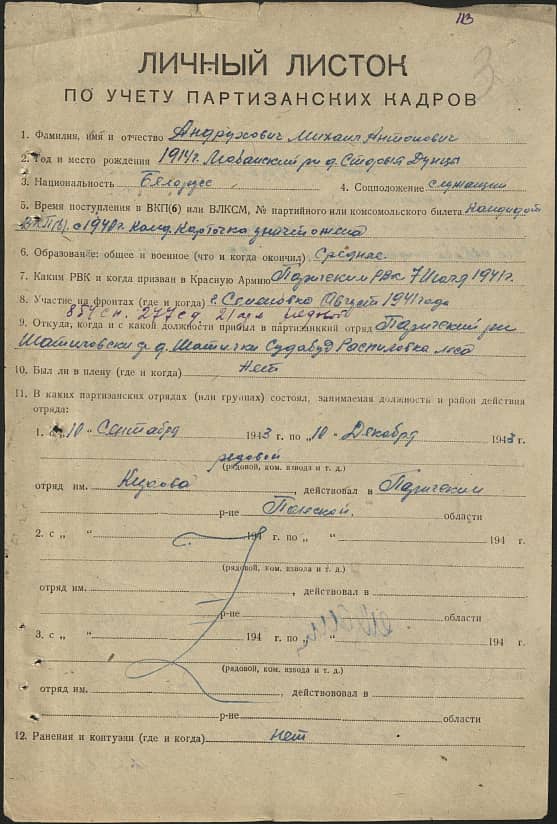 113
3
ЛИЧНЫЙ ЛИСТОК
ПО УЧЕТУ ПАРТИЗАНСКИХ КАДРОВ
1. Фамилия, имя и отчество Андрухович Михаил Антонович
2. Год и место рождения 1914 г. Любанский рн д. Старые
3. Национальность Белорус 4. Соцположение служащий
5. Время поступления в ВКП(б) или ВЛКСМ, № партийного или комсомольского билета Кандидат
ВКП(б) с 1940 г. Канд. Карточка уничтожена
6. Образование: общее и военное (что и когда окончил) Среднее
7. Каким РВК и когда призван в Красную Армию Паричским РВК 7 1941 г.
8. Участие на фронтах (где и когда) с. Семеновка Август 1941 года
854 сп. 277 сд. 21 арм рядовой
9. Откуда, когда и с какой должности прибыл в партизанкий отряд Паричский рн
д. Распиловка леса
10. Был ли в плену (где и когда) Нет
11. В каких партизанских отрядах (или группах) состоял, занимаемая должность и район действия
отряда:
1. с „10“ Сентября 1943 г. по „10“ Декабря 1943 г.
рядовой
(рядовой, ком. взвода и т. д.)
отряд им. Кирова, действовал в Паричском
р-не Полеской области
2. с „ “ 194 г. по „ “ 194 г.
(рядовой, ком. взвода и т. д.)
отряд им. , действовал в
р-не области
3. с „ “ 194 г. по „ “ 194 г.
(рядовой, ком. взвода и т. д.)
отряд им. , действововал в
р-не области
12. Ранения и контузии (где и когда) Нет